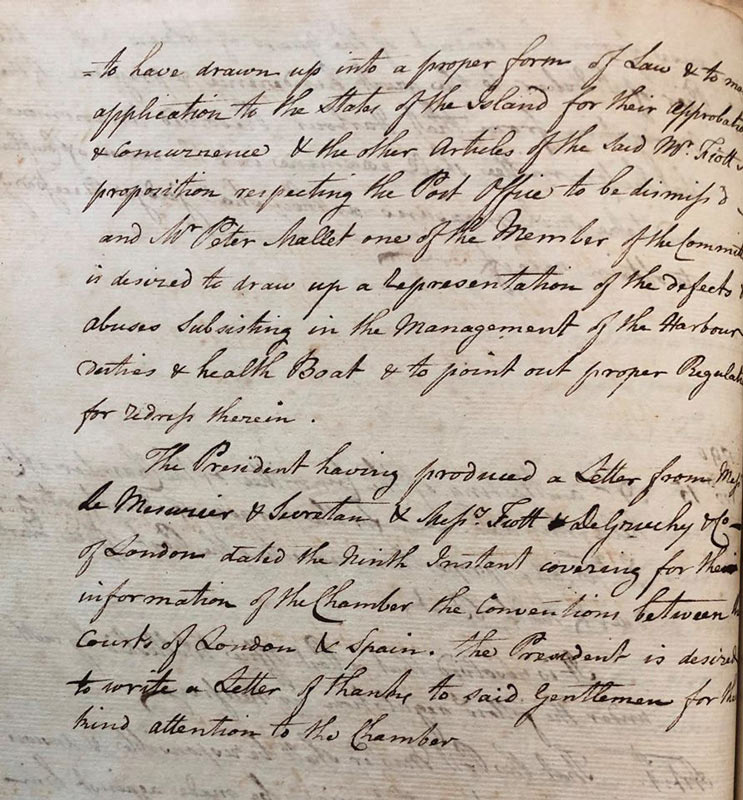 =to have drawn up into a proper form of Law & to ma
application to the States of the Island for their approbatio
& concurrence & the other Articles of the said Mr. Fiott's
proposition respecting the Post Office to be dismiss'd
and Mr Peter Mallet one of the Member of the Commit
is desired to draw up a Representation of the defects &
abuses Subsisting in the Management of the Harbour
duties & health Boat & to point out proper Regulat
for redress therein.
The President having produced a Letter from Mess
Le Mesurier & Secretan, & Messrs. Fiott & De Gruchy & Co
of London dated the Ninth Instant covering for their
information of the Chamber the Conventions between the
Courts of London & Spain. the President is desired
to write a Letter of thanks to said Gentlemen for the
kind attention to the Chamber